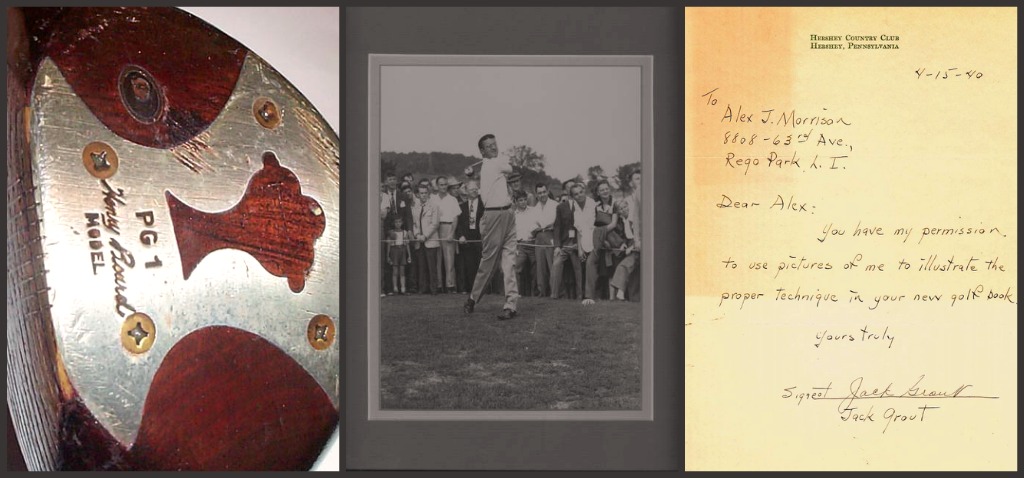 PG 1
Henry Picard
MODEL
HERSHEY COUNTRY CLUB
HERSHEY, PENNSYLVANIA
4-15-40
To
Alex J. Morrison
8808-63rd Ave.,
Rego Park, L. I.
Dear Alex:
You have my permission
to use pictures of me to illustrate the
proper technique in your new golf book
yours truly
Signed Jack Grout
Jack Grout